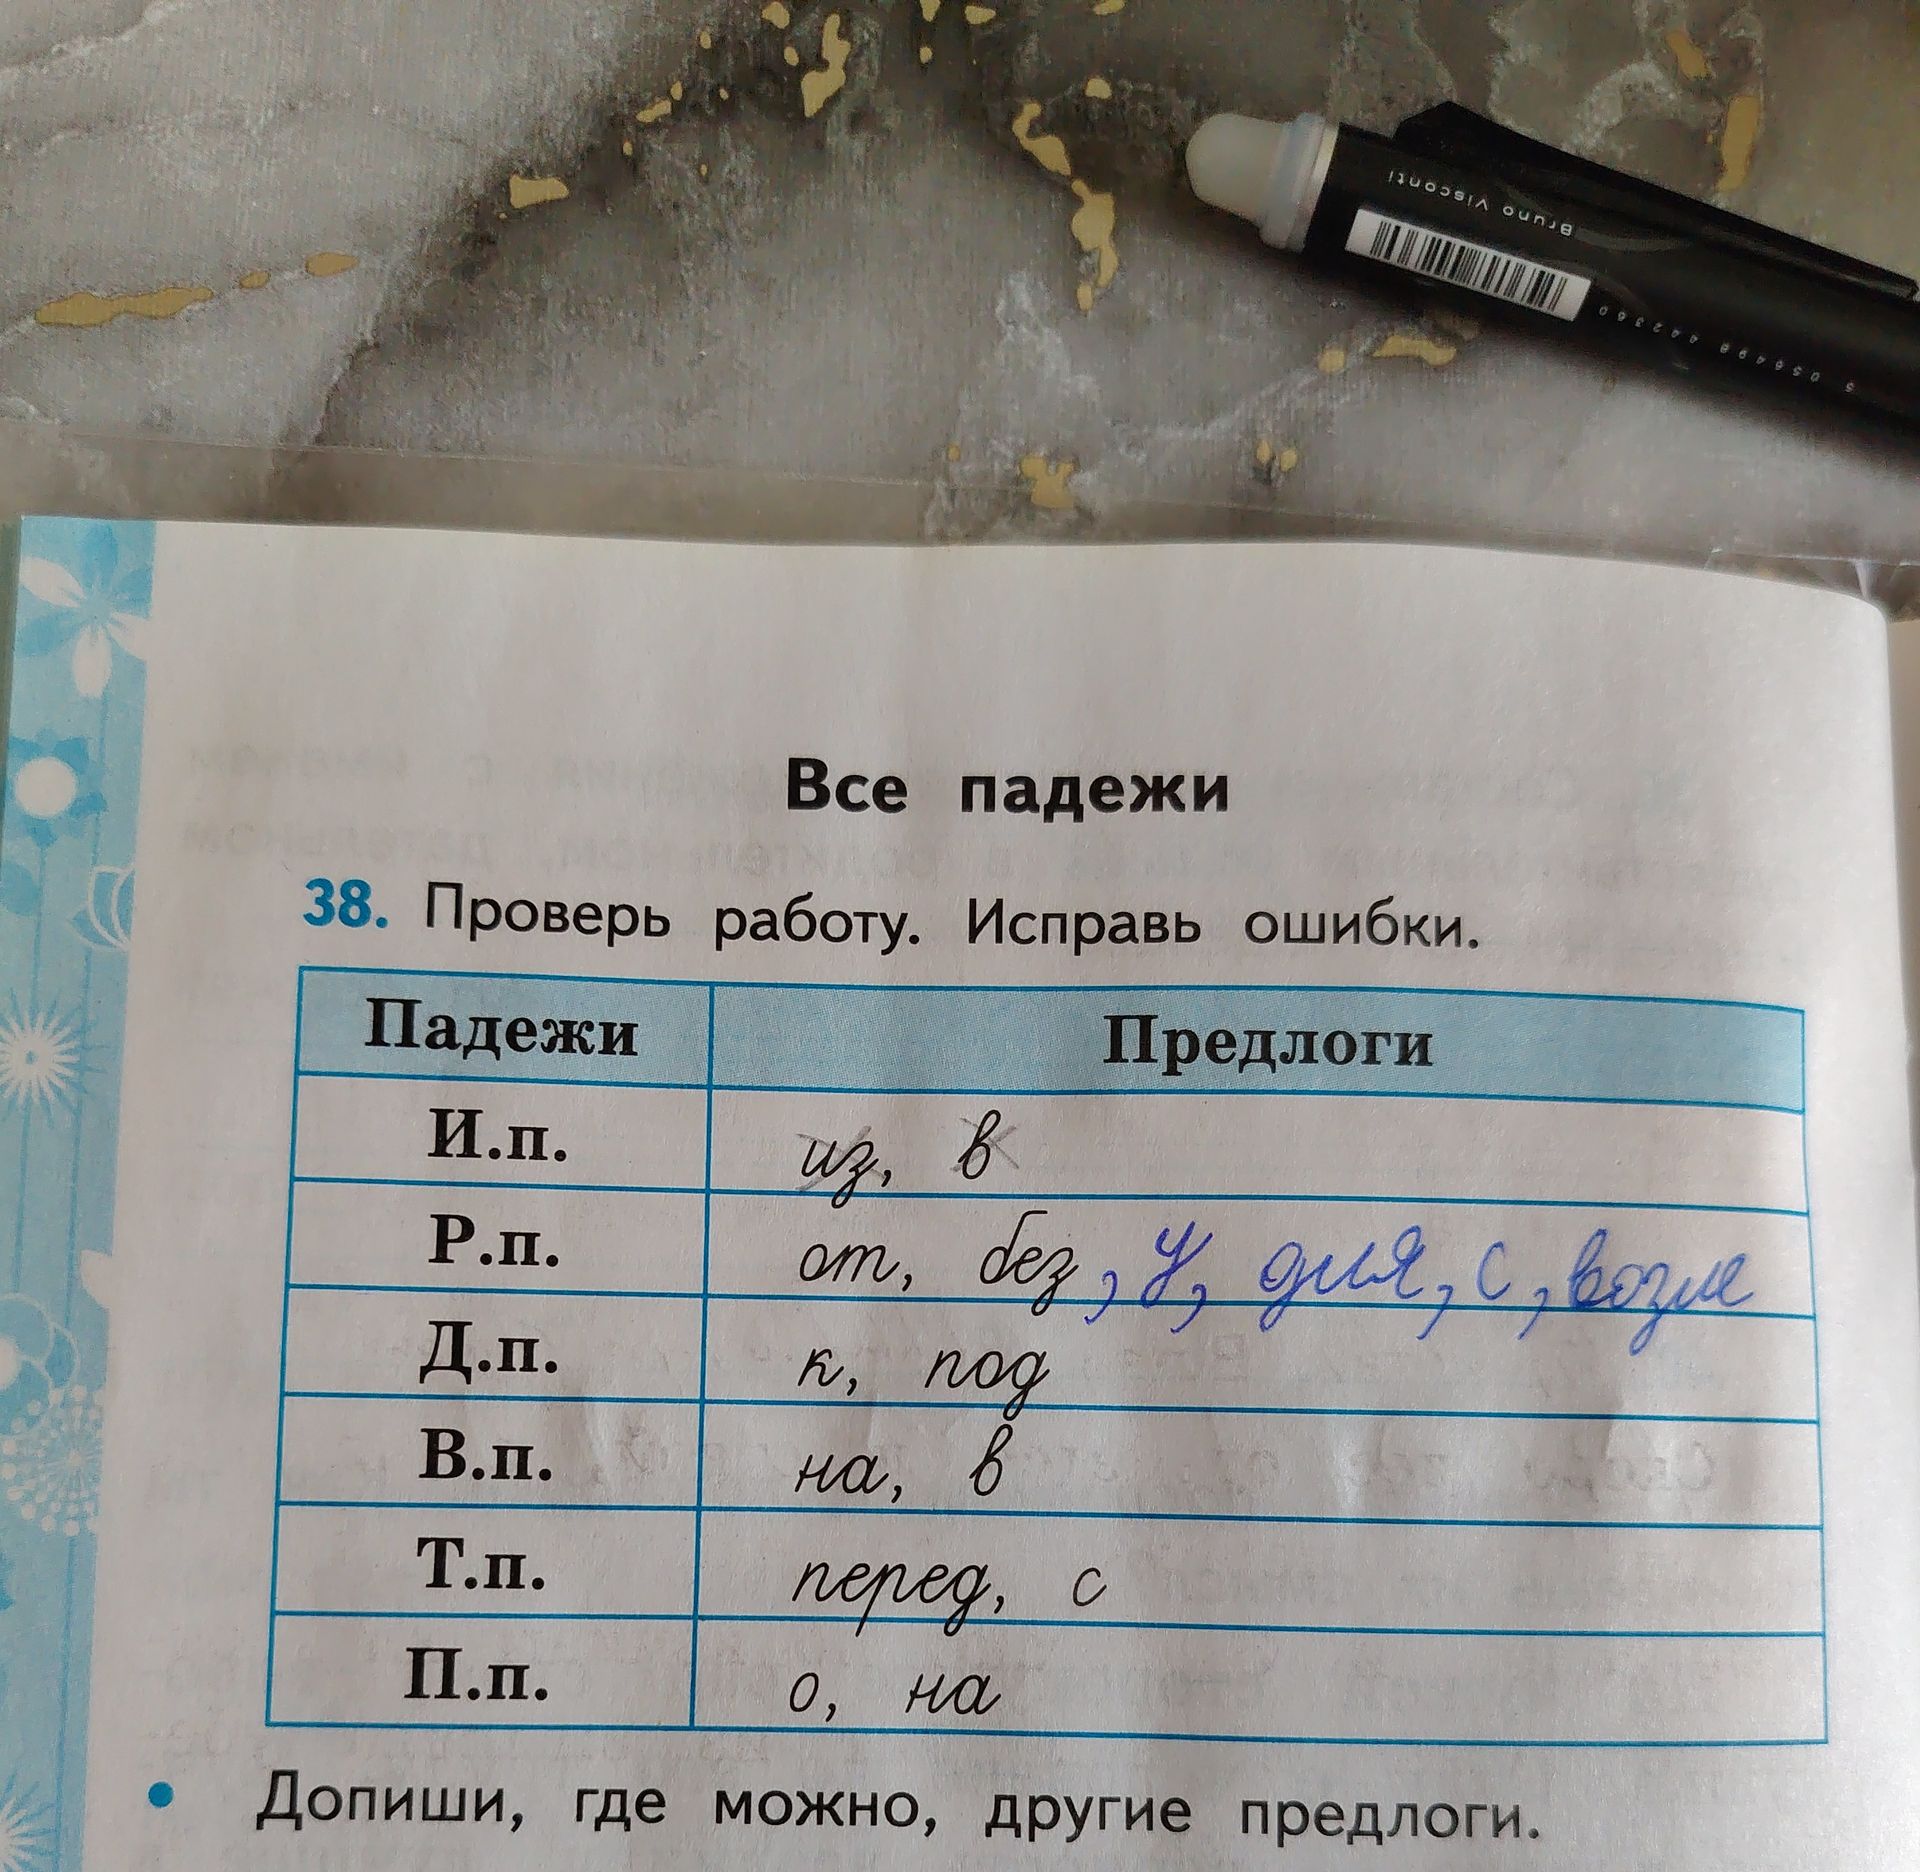 Bruno Visconti
5 056498 442360
Все падежи
38. Проверь работу. Исправь ошибки.
Падежи Предлоги
И.п. из, в
Р.п. от, без, у, для, с, возле
Д.п. к, под
В.п. на, в
Т.п. перед, с
П.п. о, на
• Допиши, где можно, другие предлоги.